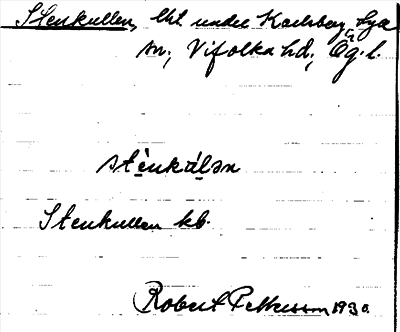 Stenkullen, lht. under Karlsberg, Sya
sn, Vifolka hd, Ög. l.
stènkálən
Stenkullen kb.
Robert Pettersson 1930.